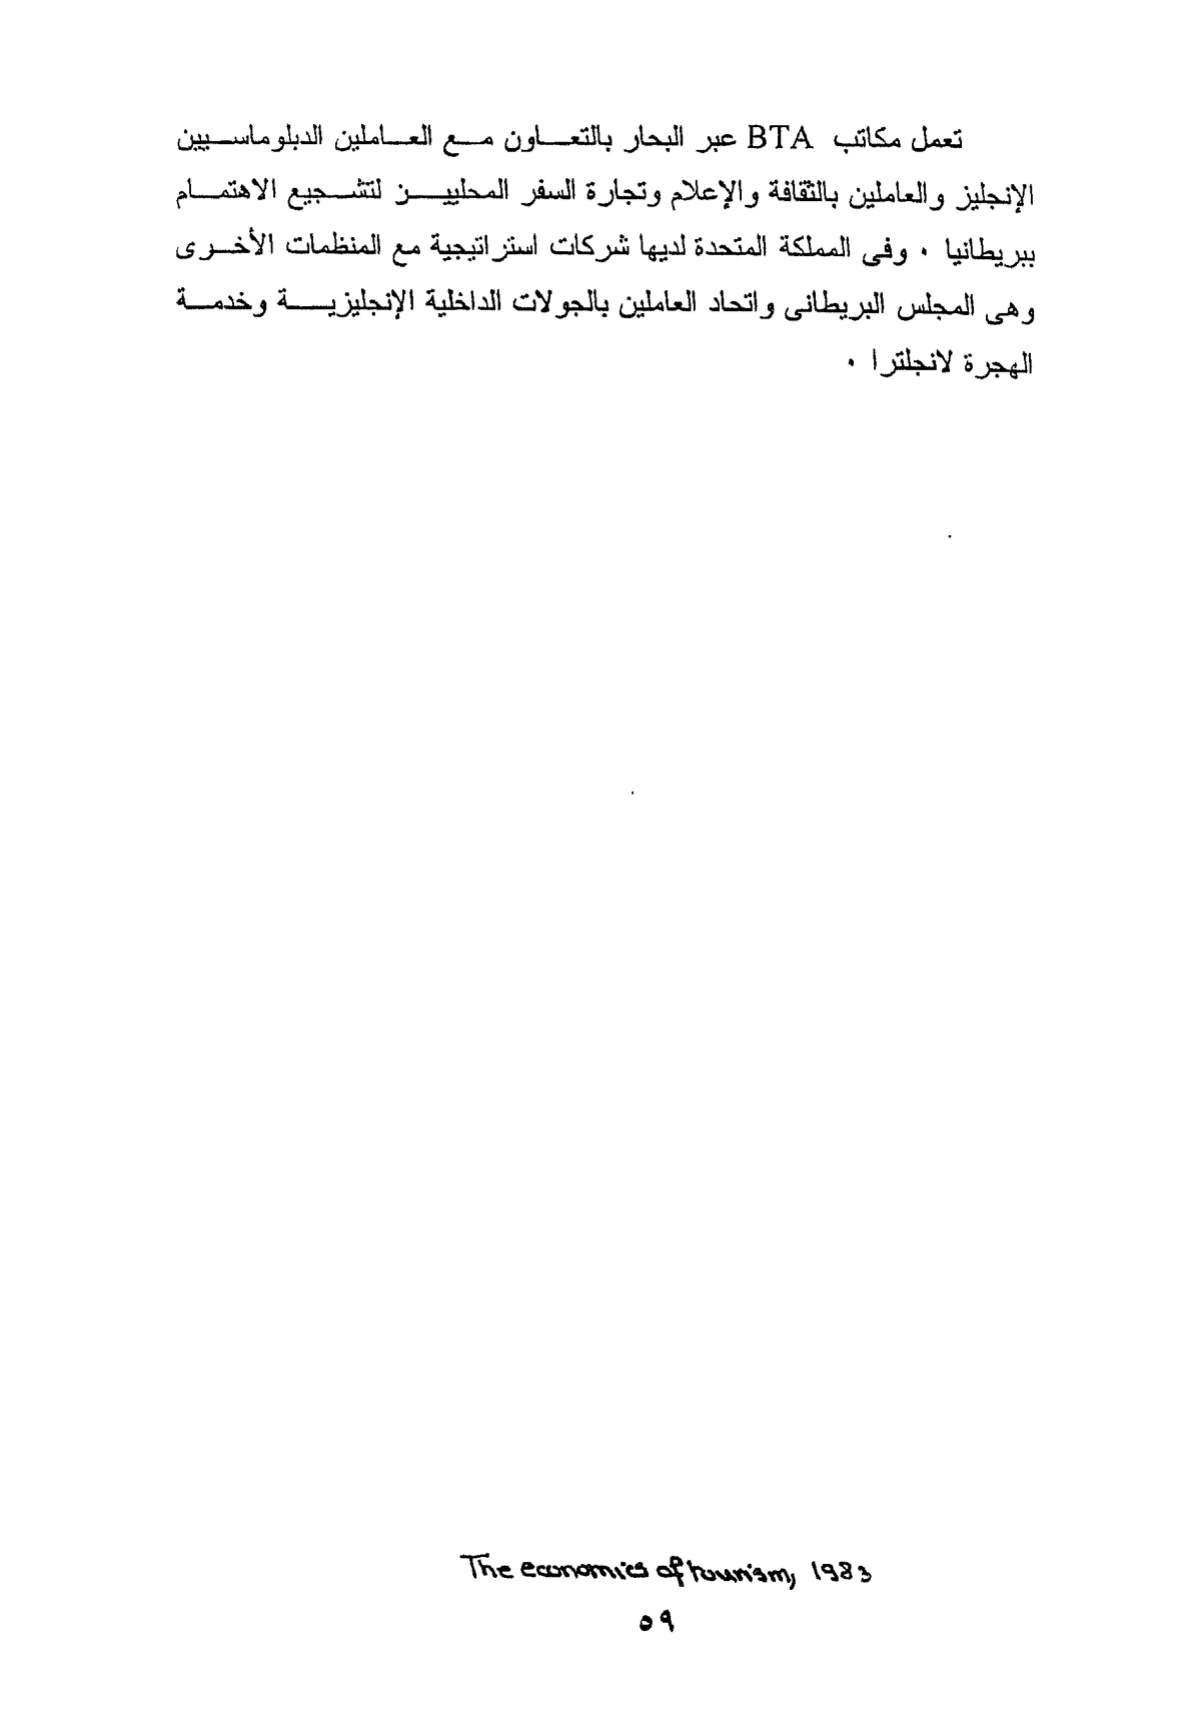 تعمل مكاتب BTA عبر البحار بالتعاون مع العاملين الدبلوماسيين
الإنجليز والعاملين بالثقافة والإعلام وتجارة السفر المحليين لتشجيع الاهتمام
ببريطانيا ٠ وفى المملكة المتحدة لديها شركات استراتيجية مع المنظمات الأخرى
وهى المجلس البريطانى واتحاد العاملين بالجولات الداخلية الإنجليزية وخدمة
الهجرة لانجلترا ٠
The economics of tourism, 1983
٥٩